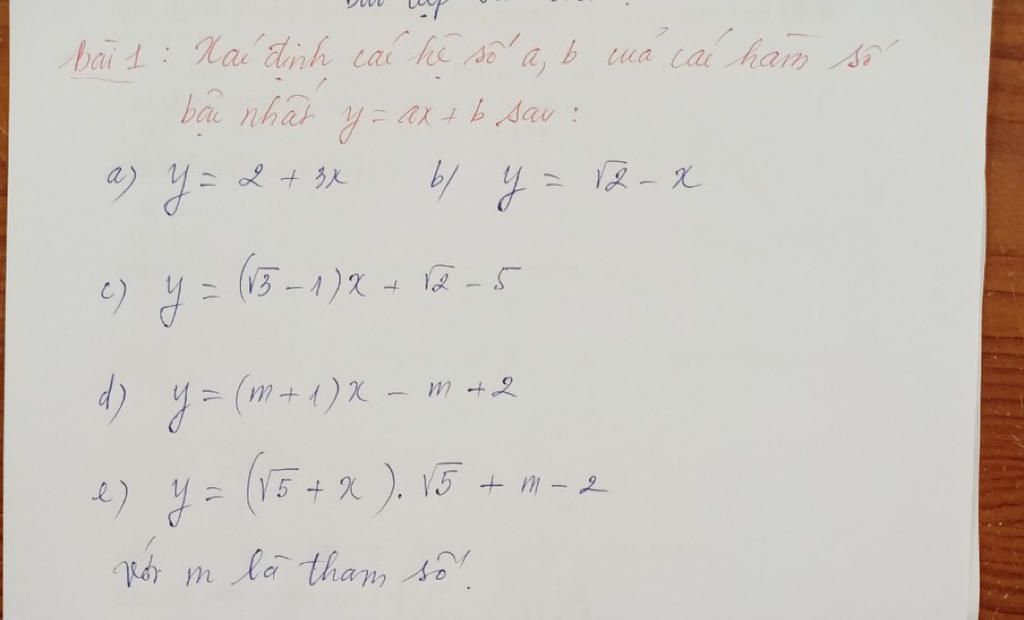 Bài 1 : Xác định các hệ số a, b của các hàm số
bậc nhất y = ax + b sau :
a) y = 2 + 3x b) y = √2 - x
c) y = (√3 - 1)x + √2 - 5
d) y = (m + 1)x - m + 2
e) y = (√5 + x). √5 + m - 2
với m là tham số.